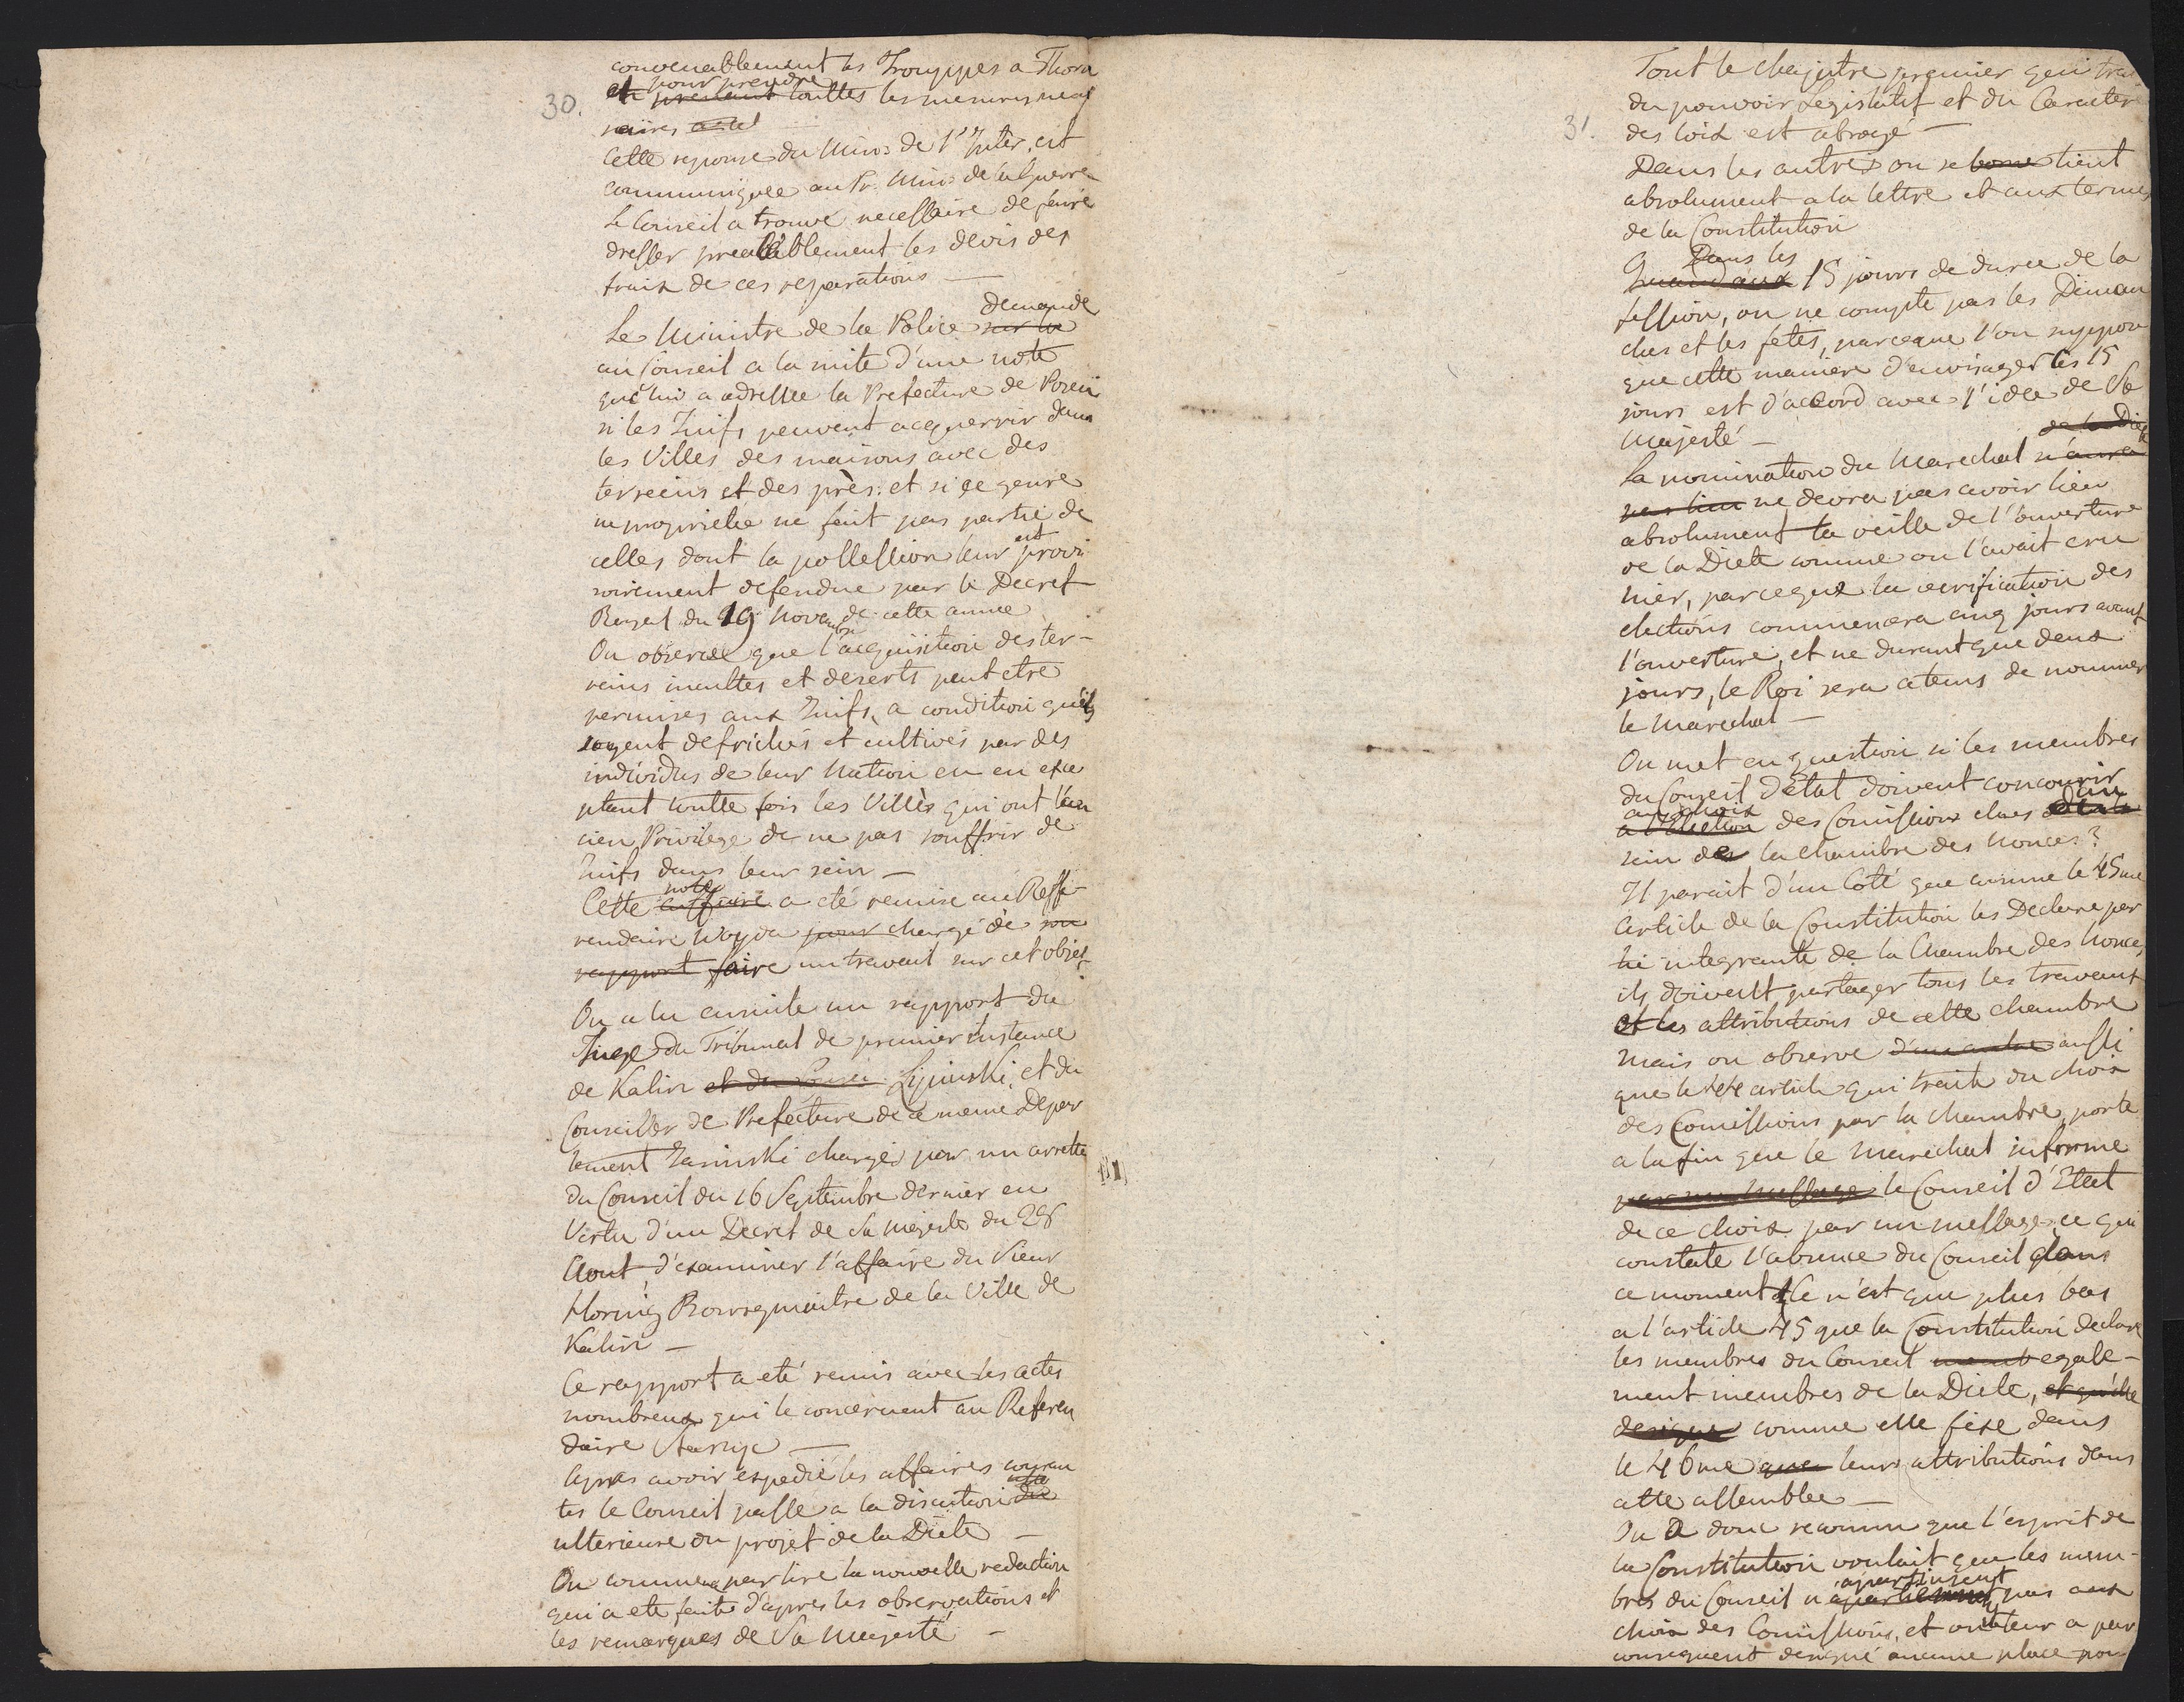 30.
convenablement les Trouppes a Thorn
et pour prendre
en prenant touttes les mesures neces
saires a cet
Cette reponse du Min: de l'Inter. est
communiquée au Pr. Min: de la Guerre
Le Conseil a trouvé necessaire de faire
dresser prealablement les devis des
fraix de ces reparations —
demande
Le Ministre de la Police sur la
au Conseil a la suite d'une note
que lui a adressée la Prefecture de Posen
si les Juifs peuvent acquerrir dans
les Villes des maisons avec des
terreins et des près: et si ce genre
de proprieté ne fait pas partie de
celles dont la possession leur est provi
soirement defendue par le Decret
Royal du 19 Novembre de cette année
On observe que l'acquisition des ter-
reins incultes et deserts peut etre
permises aux Juifs, a condition qu'ils
soyent defrichés et cultivés par des
individus de leur Nation en en exce
ptant toutte fois les Villes qui ont l'an
cien Privilege de ne pas souffrir de
Juifs dans leur sein —
note
Cette affaire a été remise au Reffe-
rendaire Woyda pour chargé de son
rapport faire un travail sur cet objet
On a lu ensuite un rapport du
Juge du Tribunal de premier instance
de Kalisz et du Consei Lipinski, et du
Conseiller de Prefecture de ce meme Depar
tement Jasinski chargés par un arretté
du Conseil du 16 Septembre dernier en
Vertu d'un Decret de Sa Majesté du 28
Aout d'examiner l'affaire du Sieur
Horning Bourgmaitre de la Ville de
Kalisz —
Ce rapport a eté remis avec les actes
nombreux qui le concernent au Referen
daire —
Apres avoir expedié les affaires couran
tes le Conseil passe a la discution
ulterieure du projet de la Diete —
On commença par lire la nouvelle redaction
qui a eté faite d'apres les observations et
les remarques de Sa Majesté —
31.
Tout le chapitre premier qui trai
du pouvoir Legislatif et du Caracter
des loix est abrogé —
Dans les autres on se borne tient
absolument a la lettre et aux termes
de la Constitution
Dans les
Quand aux 15 jours de durée de la
session, on ne compte pas les Diman
ches et les fetes, parceque l'on suppose
que cette maniere d'envisager les 15
jours est d'accord avec l'idée de Sa
Majesté —
de la Diete
La nomination du Marechal n'aura
pas lieu ne devra pas avoir lieu
absolument la veille de l'ouverture
de la Diete comme on l'avait cru
hier, parceque la verification des
elections commencera cinq jours avant
l'ouverture, et ne durant que deux
jours, le Roi sera a tems de nommer
le Marechal —
On met en question si les membres
du Conseil d'Etat doivent concourir
au choix
a l'élection des Comissions elues
sein de la chambre des Nonces?
Il parait d'un Coté que comme le 45me
article de la Constitution les Declare par
tie integrante de la Chambre des Nonces
ils doivent partager tous les travaux
et les attributions de cette chambre
Mais on observe d'un autre aussi
que le 44 article qui traite du choix
des Comissions par la chambre, porte
a la fin que le Marechal informe
par un message le Conseil d'Etat
de ce choix par un message, ce qui
constate l'absence du Conseil dans
ce moment. Ce n'est que plus bas
a l'article 45 que la Constitution declare
les membres du Conseil memb egale-
ment membres de la Diete, et qu'elle
designe comme elle fixe dans
le 46me que leurs attributions dans
cette assemblée —
On a donc reconnu que l'esprit de
la Constitution voulait que les mem-
apartinsent
bres du Conseil n'apartiennent pas aux
choix des Comissions, et on a par
consequent designé aucune place pour